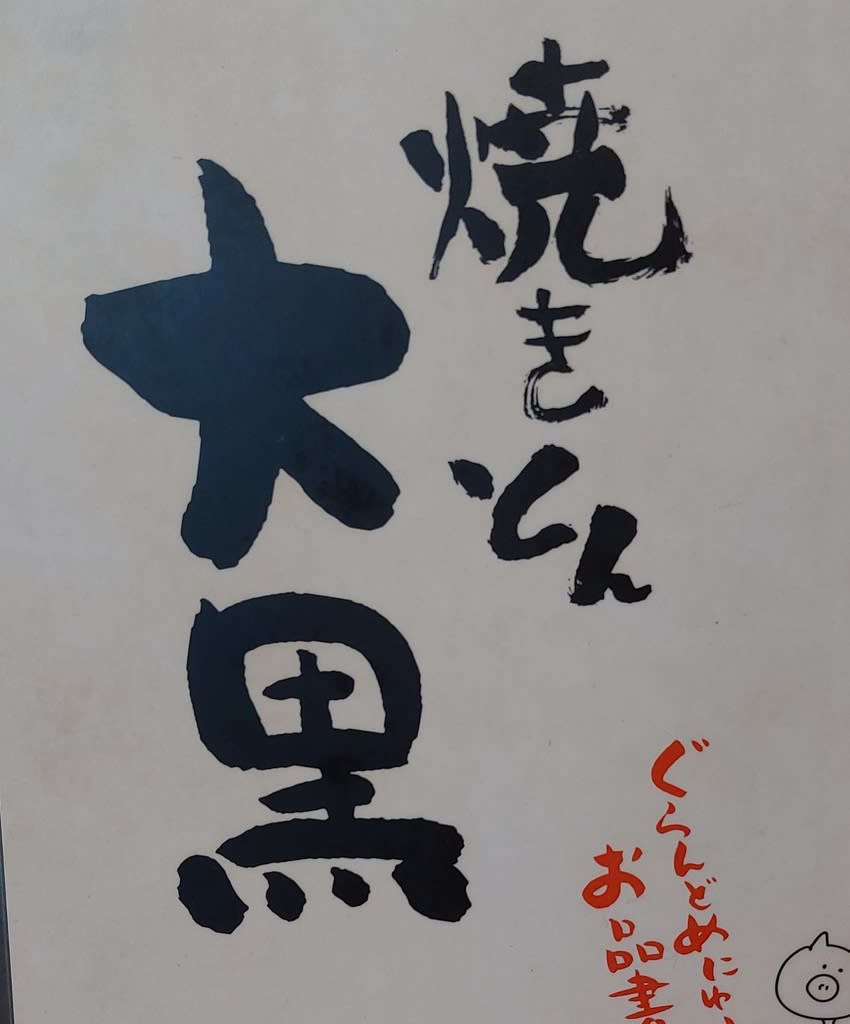 焼きとん
大黒
ぐらんどめにゅ
お品書